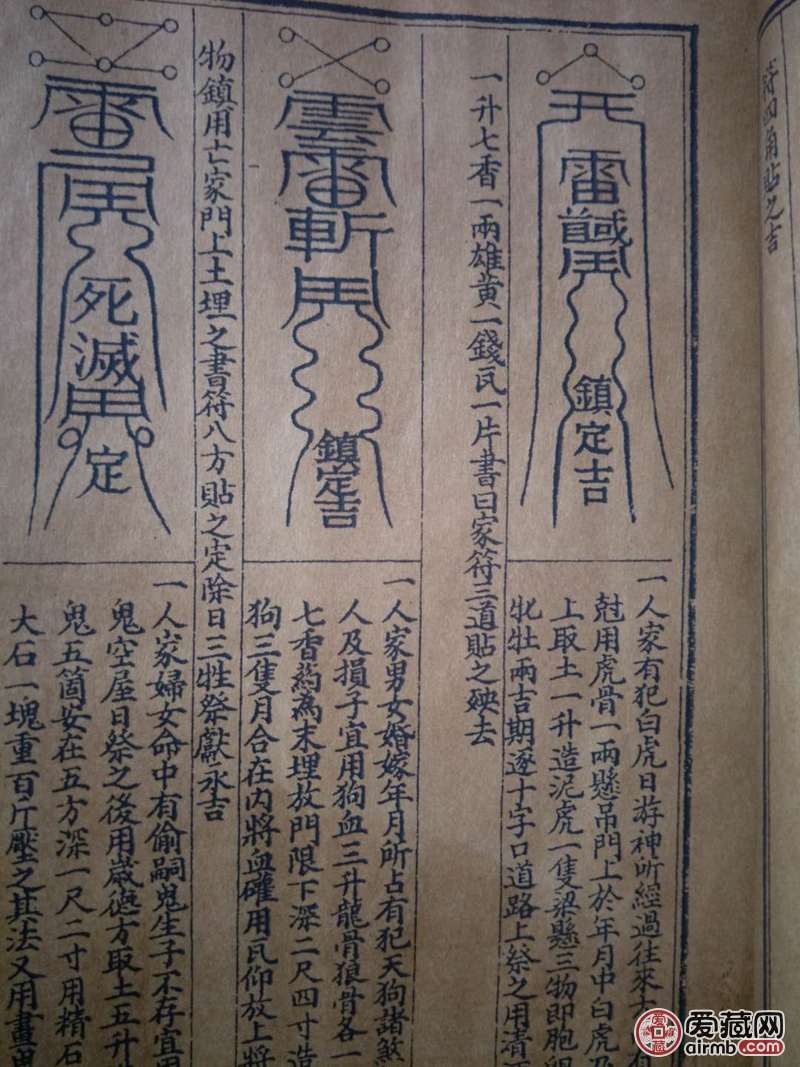 符四角貼之吉
雷
鎮定吉
一人家有犯白虎日游神所經過往來
尅用虎骨一兩懸吊門上於年月中白虎
上取土一升造泥虎一隻梁懸三物即胞
牝牡兩吉期逐十字口道路上祭之用清
一升七香一兩雄黃一錢瓦一片書曰家符三道貼之殃去
雲雷斬
鎮定吉
一人家男女婚嫁年月所占有犯天狗諸煞
人及損子宜用狗血三升龍骨狼骨各一
七香葯為末埋放門限下深二尺四寸造
狗三隻月合在內將血確用瓦仰放上將
物鎮用亡家門上土埋之書符八方貼之定除日三牲祭獻永吉
雷
死滅
定
一人家婦女命中有偷嗣鬼生子不存宜用
鬼空屋日祭之後用歲德方取土五升
鬼五箇安在五方深一尺二寸用精石
大石一塊重百斤壓之其法又用畫
爱藏网
airmb.com